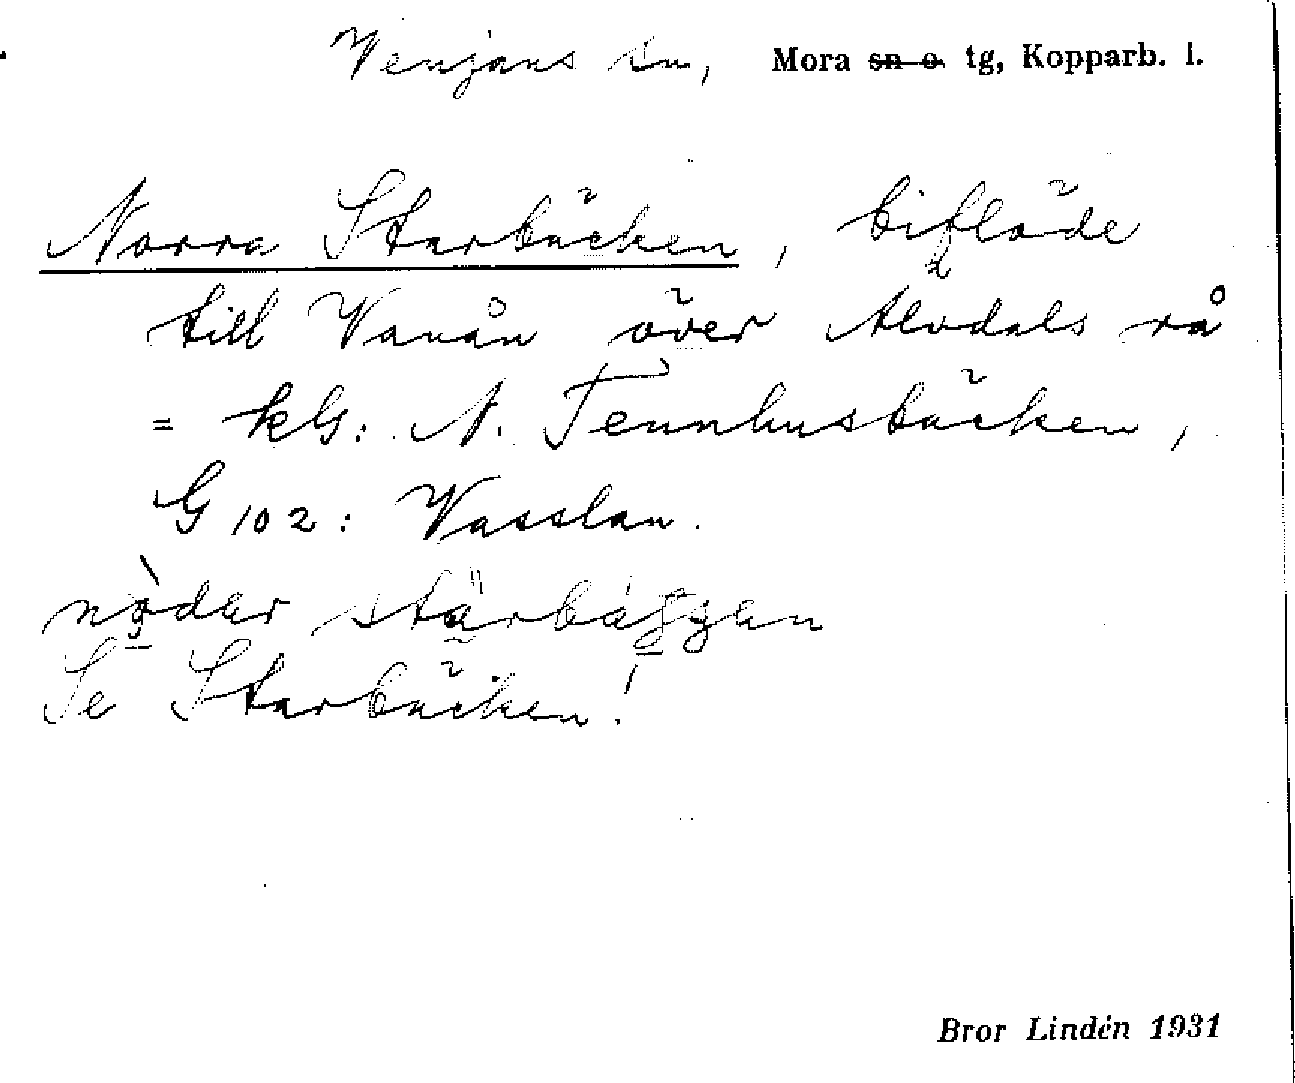 Venjans sn, Mora sn o. tg, Kopparb. l.
Norra Starbäcken, biflöde
till Vanån över Älvdals rå
= kls: N. Tennhusbäcken,
G 102: Vasslan.
nòdar stärbäggen
Se Starbäcken!
Bror Lindén 1931